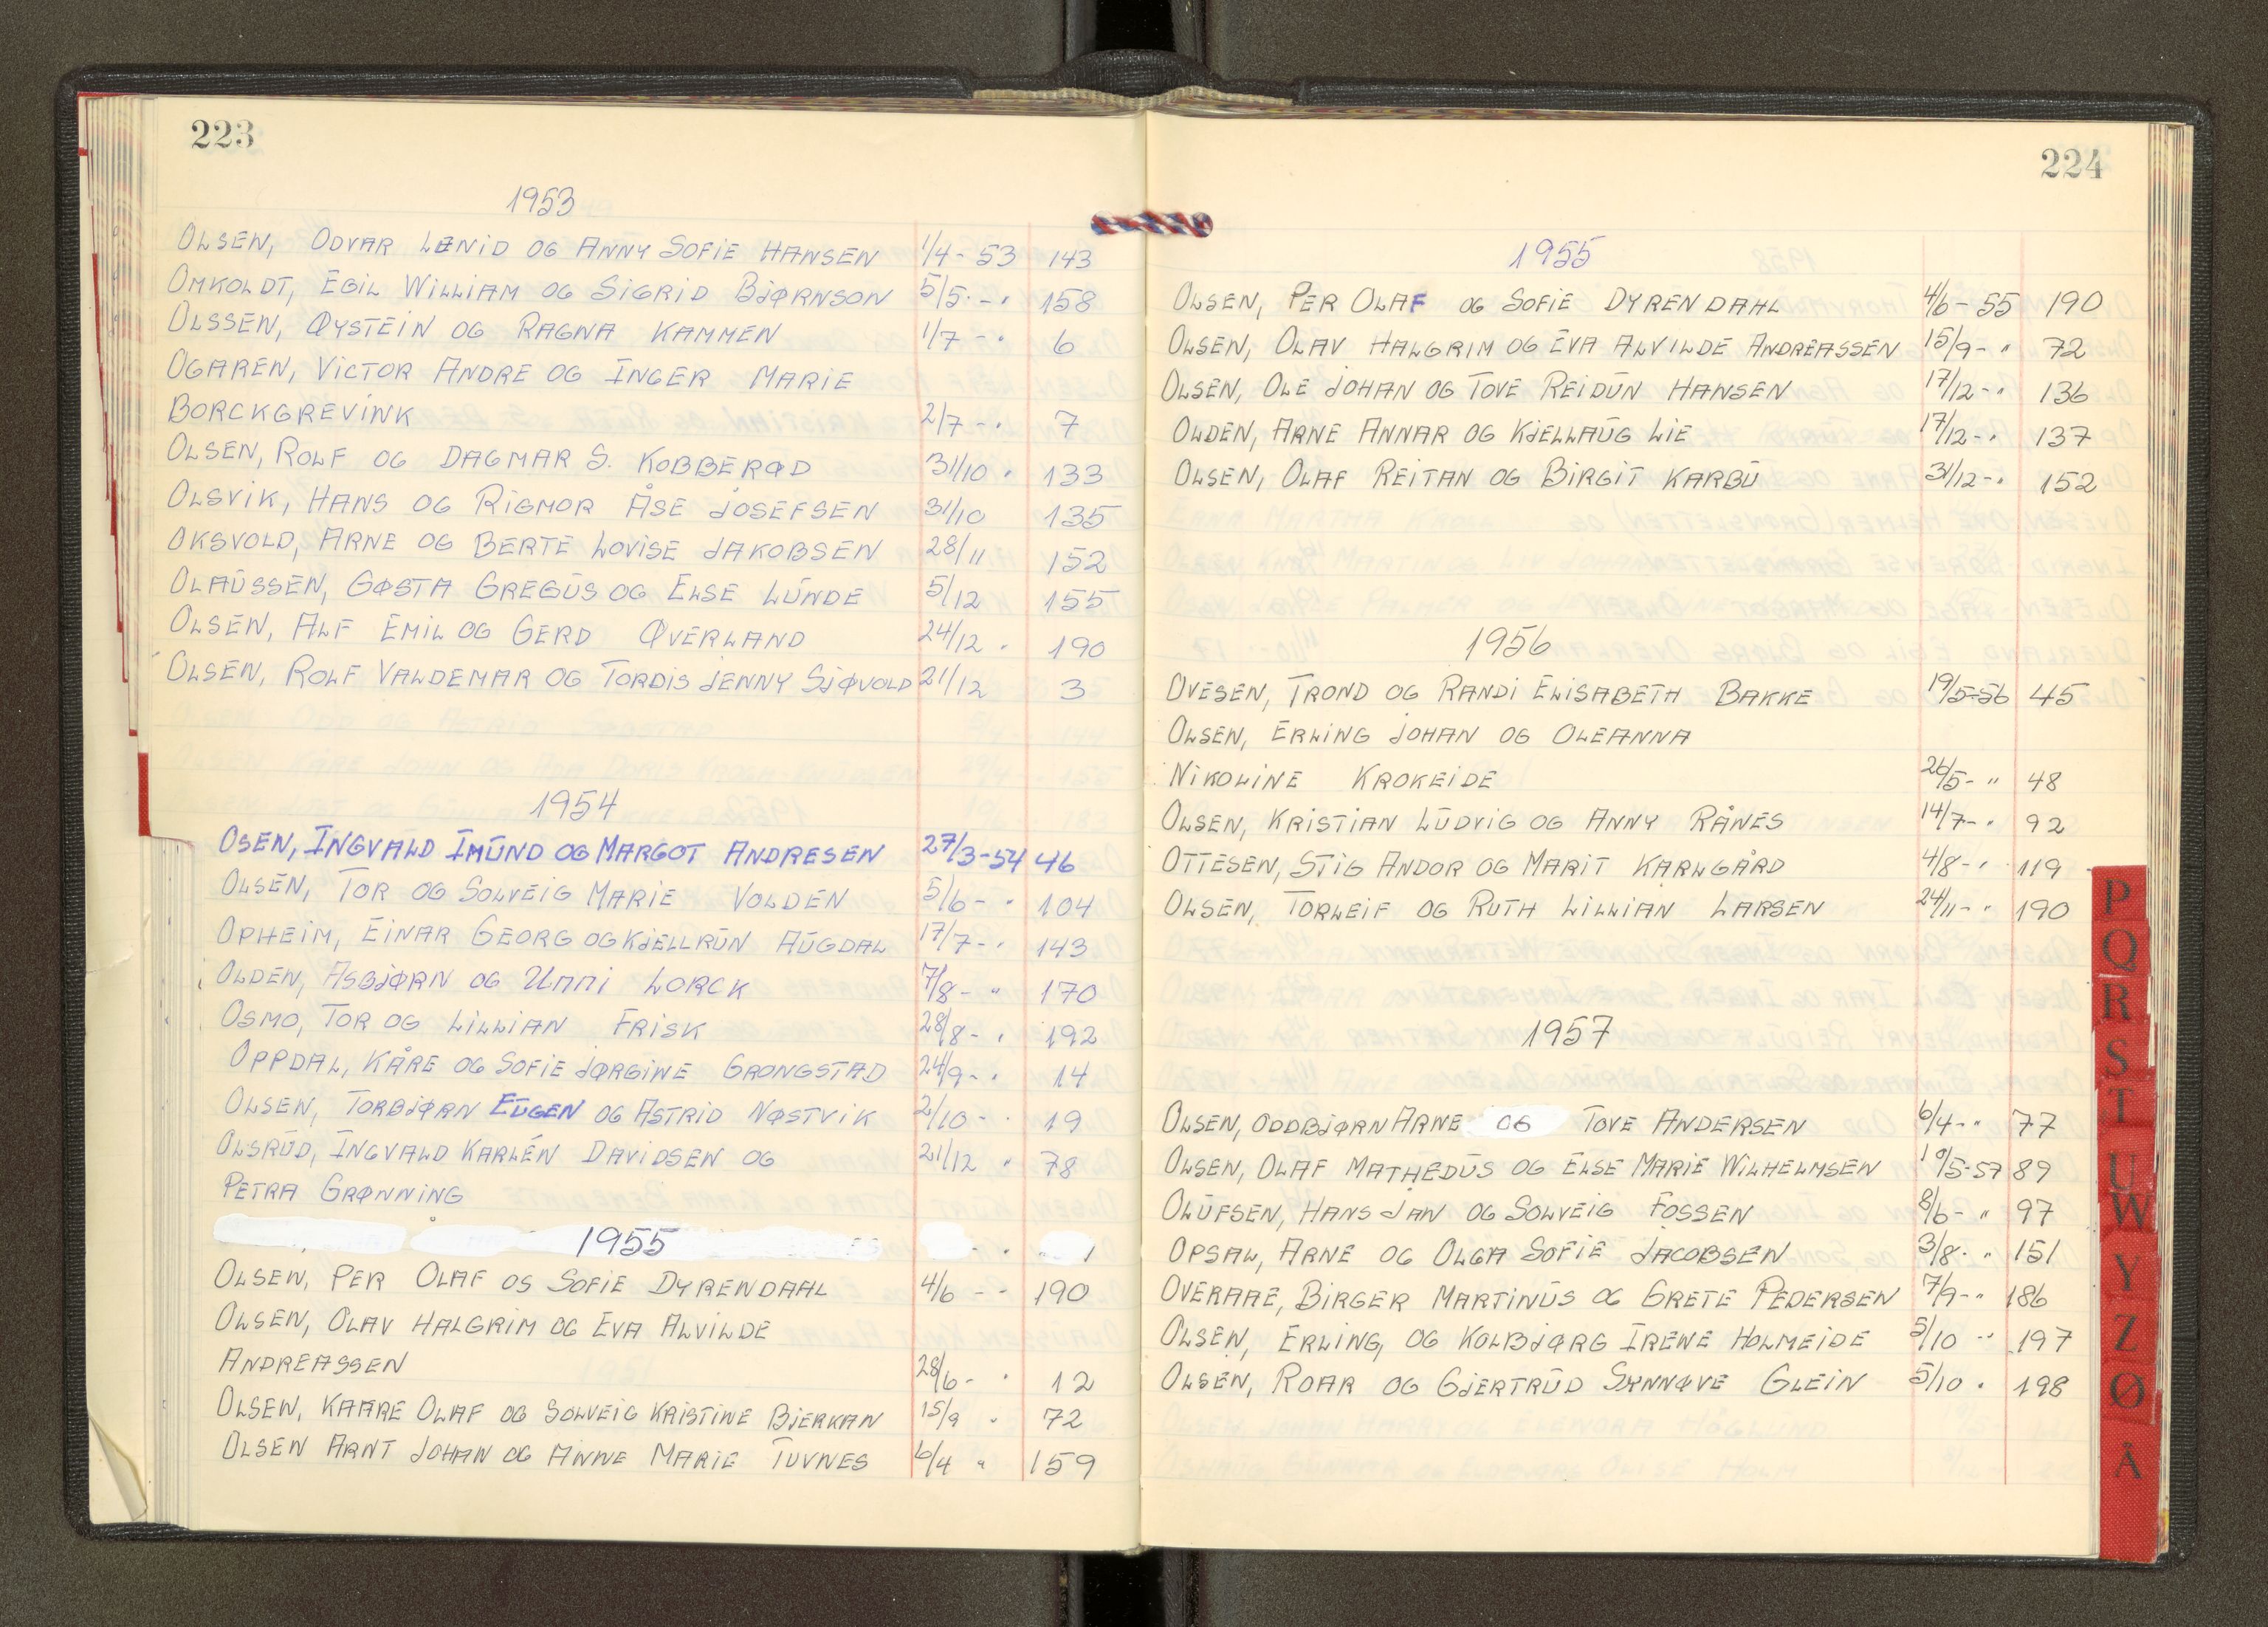 223
1953
OLSEN, ODVAR LENID OG ANNY SOFIE HANSEN 1/4-53 143
OMKOLDT, EGIL WILLIAM OG SIGRID BJØRNSON 5/5.-" 158
OLSSEN, ØYSTEIN OG RAGNA KAMMEN 1/7-" 6
OGAREN, VICTOR ANDRE OG INGER MARIE
BORCKGREVINK 2/7-" 7
OLSEN, ROLF OG DAGMAR S. KOBBERØD 31/10 " 133
OLSVIK, HANS OG RIGMOR ÅSE JOSEFSEN 31/10 135
OKSVOLD, ARNE OG BERTE LOVISE JAKOBSEN 28/11 152
OLAUSSEN, GØSTA GREGUS OG ELSE LUNDE 5/12 155
OLSEN, ALF EMIL OG GERD ØVERLAND 24/12 " 190
OLSEN, ROLF VALDEMAR OG TORDIS JENNY SJØVOLD 21/12 3
1954
OSEN, INGVALD IMUND OG MARGOT ANDRESEN 27/3-54 46
OLSEN, TOR OG SOLVEIG MARIE VOLDEN 5/6-" 104
OPHEIM, EINAR GEORG OG KJELLRUN AUGDAL 17/7-" 143
OLDEN, ASBJØRN OG UNNI LORCK 7/8-" 170
OSMO, TOR OG LILLIAN FRISK 28/8-" 192
OPPDAL, KÅRE OG SOFIE JØRGINE GRONGSTAD 24/9-" 14
OLSEN, TORBJØRN EUGEN OG ASTRID NØSTVIK 2/10-" 19
OLSRUD, INGVALD KARLÉN DAVIDSEN OG 21/12 " 78
PETRA GRØNNING
1955
OLSEN, PER OLAF OG SOFIE DYRENDAHL 4/6 -- 190
OLSEN, OLAV HALGRIM OG EVA ALVILDE
ANDREASSEN 28/6-" 12
OLSEN, KAARE OLAF OG SOLVEIG KRISTINE BJERKAN 15/9 " 72
OLSEN ARNT JOHAN OG ANNE MARIE TUVNES 6/4 " 159
224
1955
OLSEN, PER OLAF OG SOFIE DYRENDAHL 4/6-55 190
OLSEN, OLAV HALGRIM OG EVA ALVILDE ANDREASSEN 15/9-" 72
OLSEN, OLE JOHAN OG TOVE REIDUN HANSEN 17/12-" 136
OLDEN, ARNE ANNAR OG KJELLAUG LIE 17/12-" 137
OLSEN, OLAF REITAN OG BIRGIT KARBU 31/12-" 152
1956
OVESEN, TROND OG RANDI ELISABETH BAKKE 19/5-56 45
OLSEN, ERLING JOHAN OG OLEANNA
NIKOLINE KROKEIDE 26/5-" 48
OLSEN, KRISTIAN LUDVIG OG ANNY RÅNES 14/7-" 92
OTTESEN, STIG ANDOR OG MARIT KARLGÅRD 4/8-" 119
OLSEN, TORLEIF OG RUTH LILLIAN LARSEN 24/11-" 190
1957
OLSEN, ODDBJØRN ARNE OG TOVE ANDERSEN 6/4-" 77
OLSEN, OLAF MATHEDUS OG ELSE MARIE WILHELMSEN 10/5-57 89
OLUFSEN, HANS JAN OG SOLVEIG FOSSEN 8/6-" 97
OPSAL, ARNE OG OLGA SOFIE JACOBSEN 3/8-" 151
OVERAAE, BIRGER MARTINUS OG GRETE PEDERSEN 7/9-" 186
OLSEN, ERLING, OG KOLBJØRG IRENE HOLMEIDE 5/10 -" 197
OLSEN, ROAR OG GJERTRUD SYNNØVE GLEIN 5/10 " 198
P
Q
R
S
T
U
W
Y
Z
Ø
Å